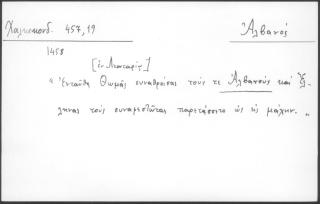 Χαλκοκονδ. 457,19 Ἀλβανός
1458
[ἐν Λεονταρίῳ]
" Ἐνταῦθα Θωμᾶς συναθροίσας τούς τε Ἀλβανούς καί Ἕλ-
ληνας τούς συναφεστῶτας παρετάσσετο ὡς ἐς μάχην. "